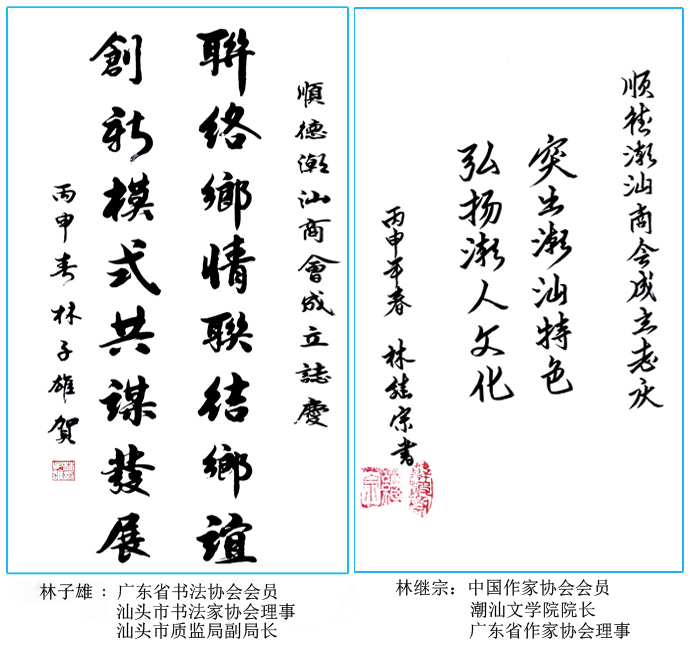 順德潮汕商會成立誌慶
聯絡鄉情聯結鄉誼
創新模式共謀發展
丙申春林子雄賀
林子雄：广东省书法协会会员
汕头市书法家协会理事
汕头市质监局副局长
顺德潮汕商会成立志庆
突出潮汕特色
弘扬潮人文化
丙申年春 林继宗书
林继宗：中国作家协会会员
潮汕文学院院长
广东省作家协会理事